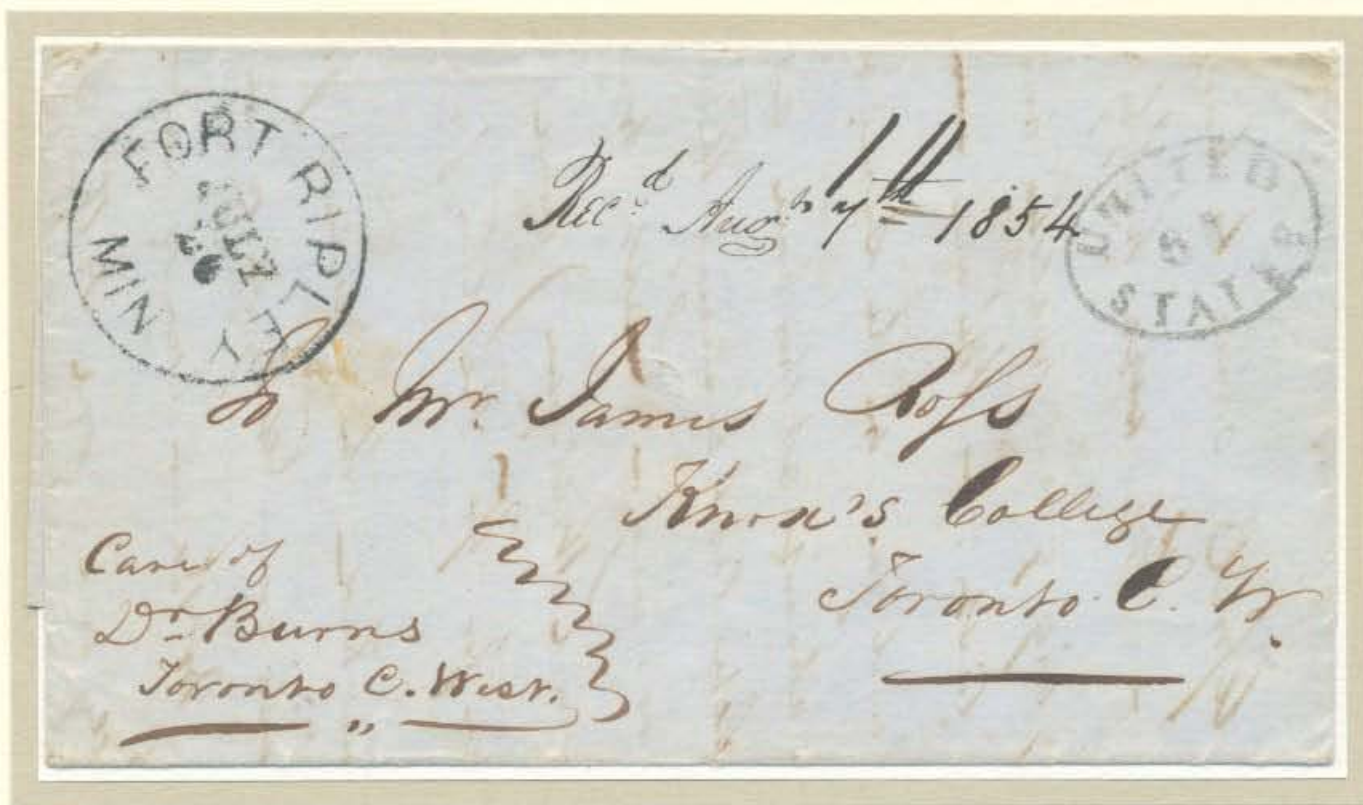 FORT RIPLEY MIN
JULY
26
Recd. Augt. 7th 1854
UNITED STATES
To Mr. James Ross
Knox's College
Toronto C. W.
Care of
Dr. Burns
Toronto C. West.